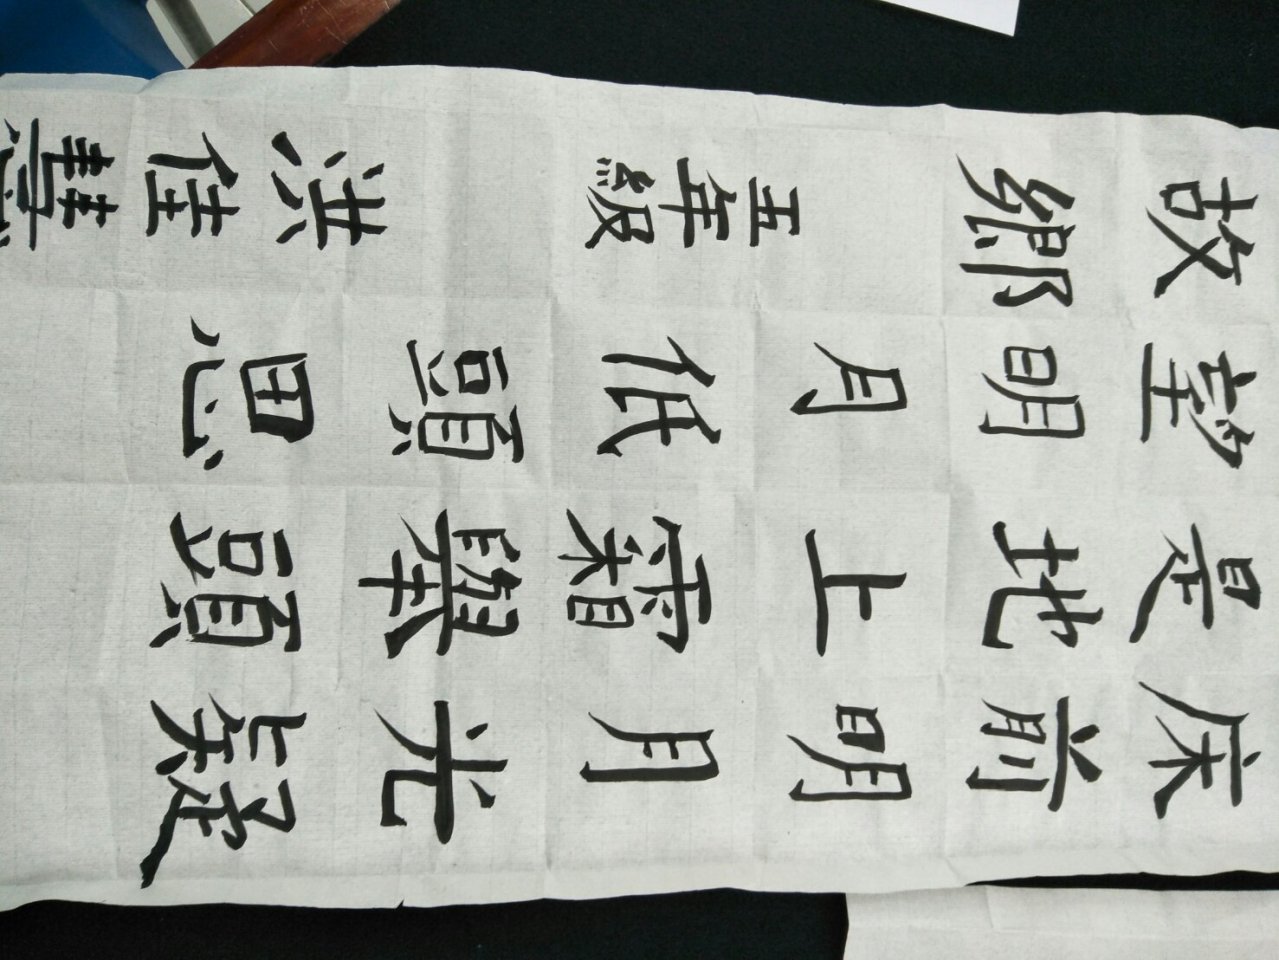 床前明月光疑
是地上霜舉頭
望明月低頭思
故鄉 五年級 洪佳慧